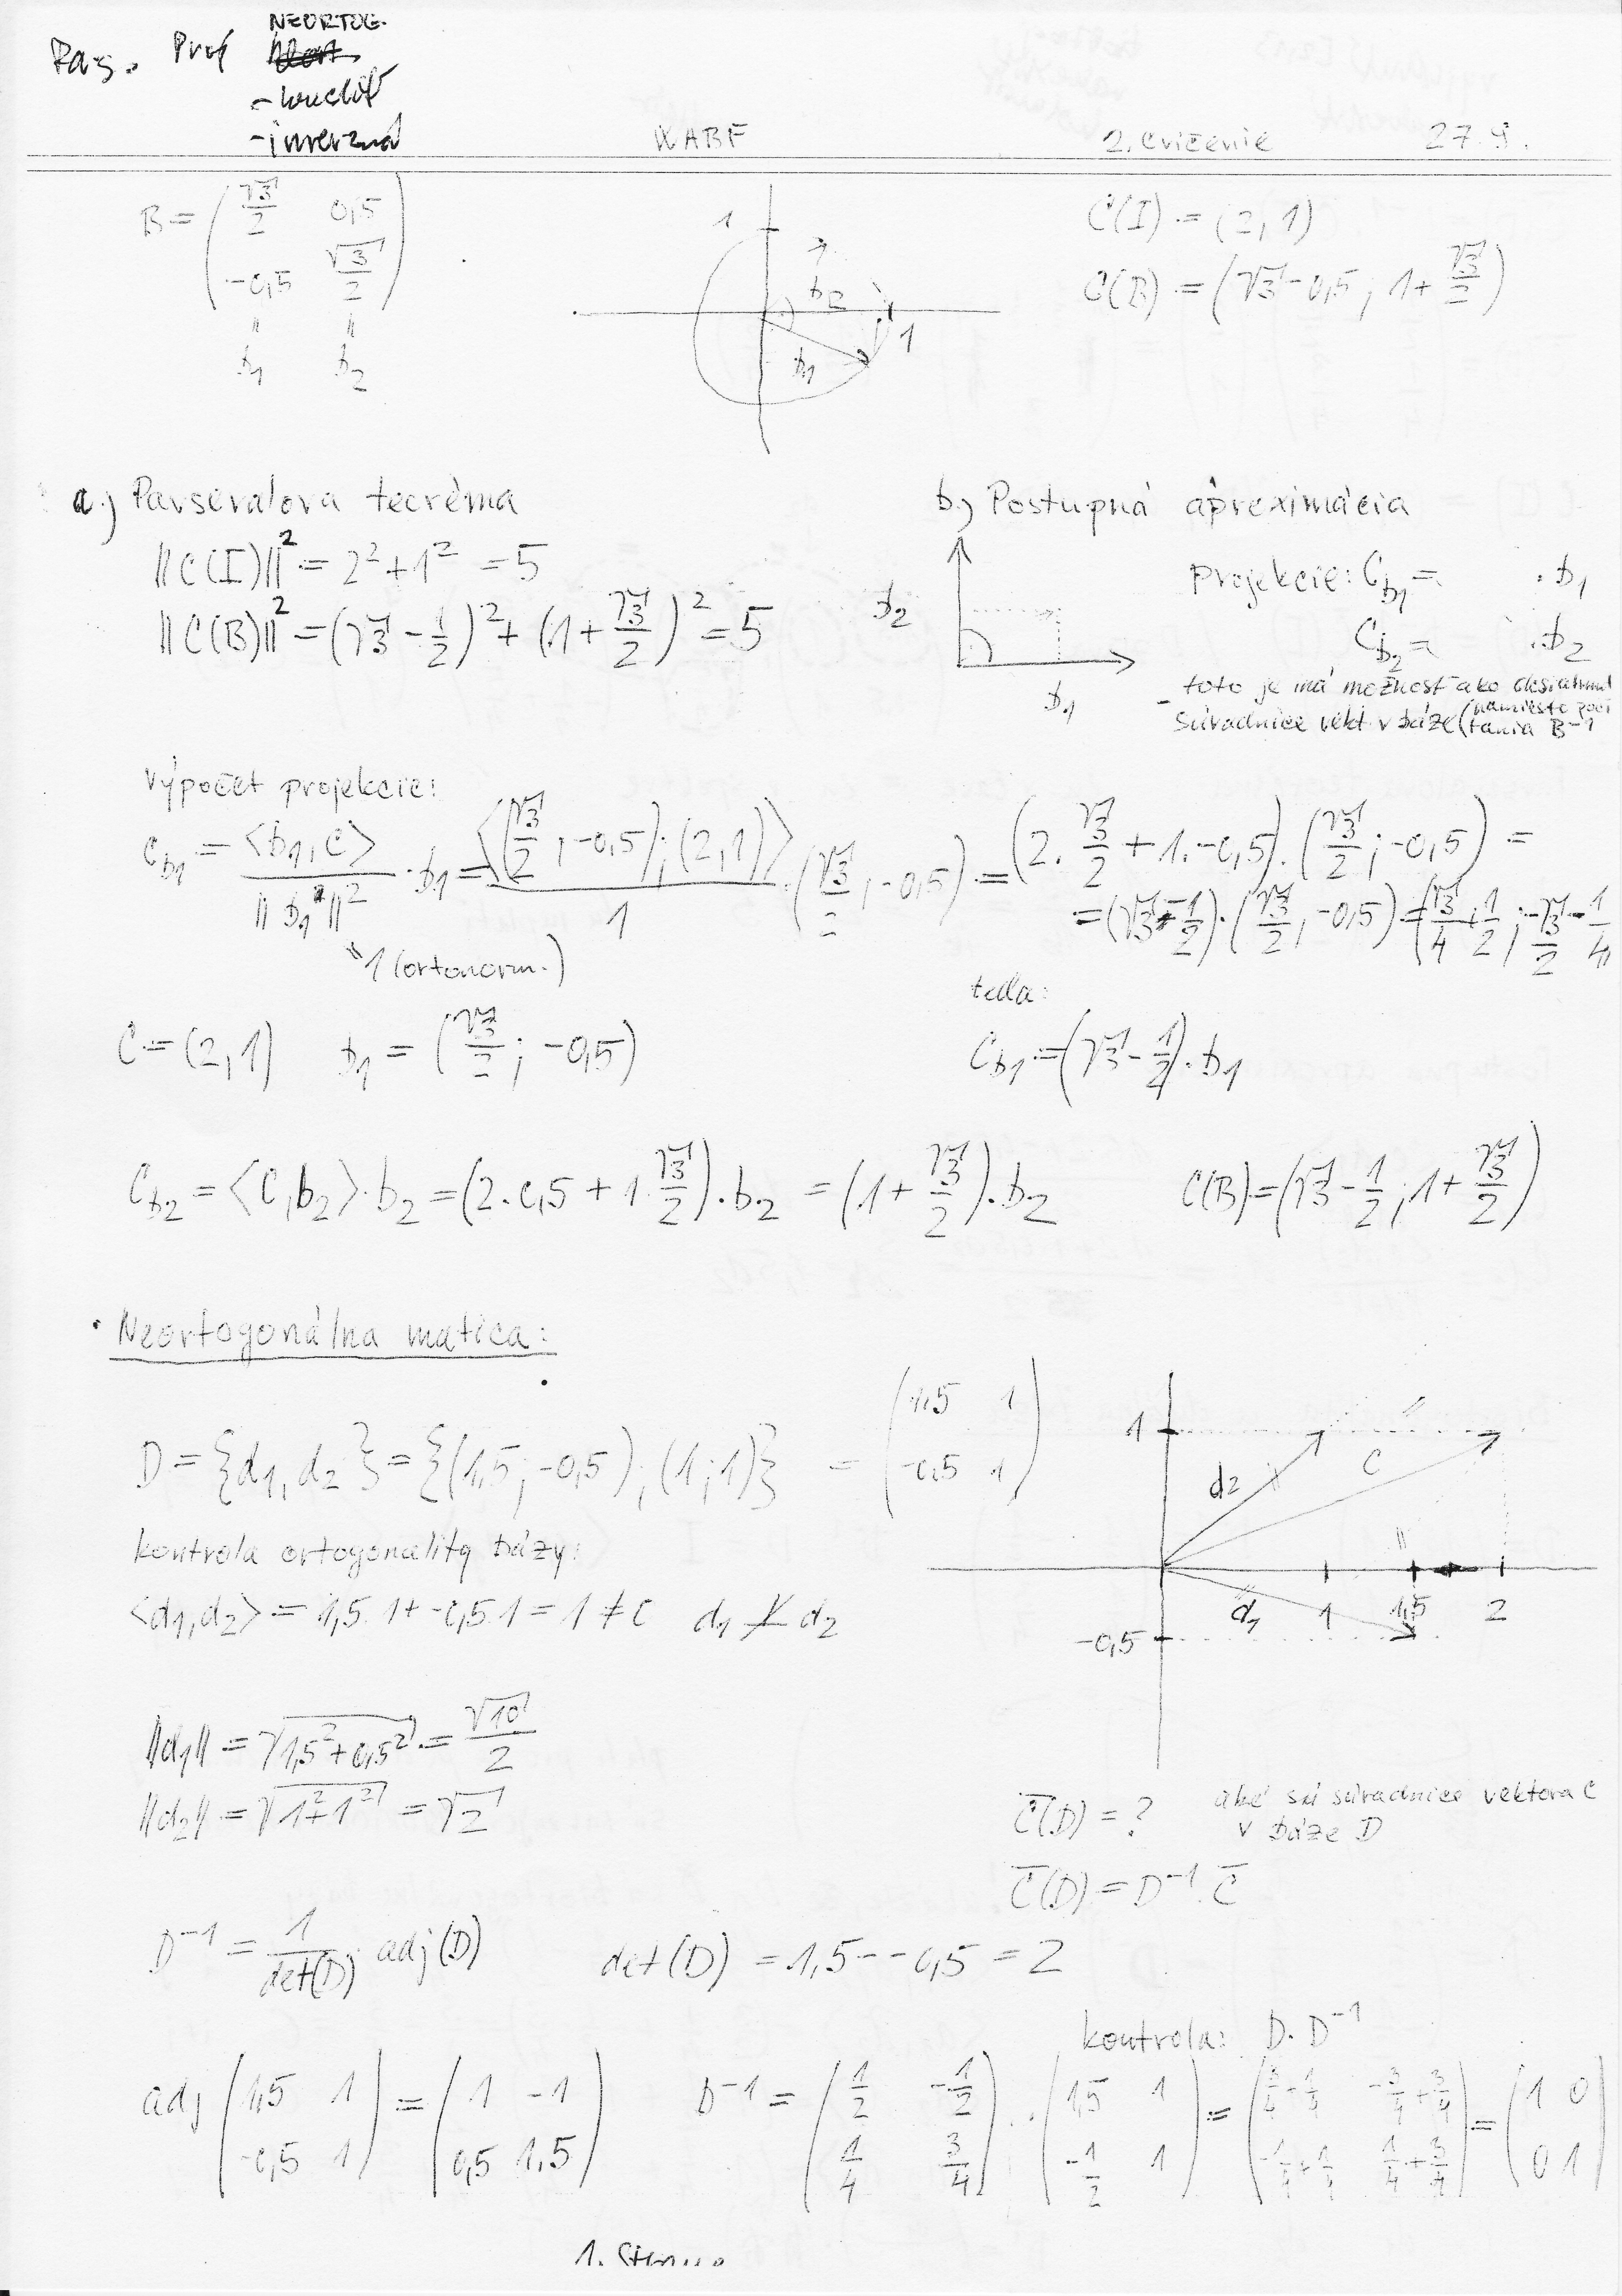 NEORTOG.
Prof
- inverzná
KABF 2. cvičenie 27.9.
B = ( √3/2 0,5 ; -0,5 √3/2 )
b1 b2
1 b2 b1 1
C(I) = (2,1)
C(B) = (√3-0,5 ; 1+√3/2)
a.) Parsevalova teoréma
||C(I)||² = 2²+1² = 5
||C(B)||² = (√3-1/2)² + (1+√3/2)² = 5
b.) Postupná aproximácia
b2 b1
projekcie: Cb1 = .b1
Cb2 = .b2
- toto je iná možnosť ako dosiahnuť
súradnice vekt. v báze (namiesto počítania B-1
výpočet projekcie:
Cb1 = <b1,C>/||b1||² · b1 = <(√3/2 ; -0,5);(2,1)>/1 · (√3/2 ; -0,5) = (2·√3/2 + 1·-0,5)·(√3/2 ; -0,5) =
= (√3-1/2)·(√3/2 ; -0,5) = (√3/4 + 1/2 ; -√3/2 - 1/4
" 1 (ortonorm.)
teda:
C = (2,1) b1 = (√3/2 ; -0,5) Cb1 = (√3-1/2)·b1
Cb2 = <C,b2>·b2 = (2·0,5 + 1·√3/2)·b2 = (1+√3/2)·b2 C(B) = (√3-1/2 ; 1+√3/2)
· Neortogonálna matica:
D = {d1,d2} = {(1,5 ; -0,5) ; (1 ; 1)} = ( 1,5 1 ; -0,5 1 )
1 d2 C
d1 1 1,5 2
-0,5
kontrola ortogonality bázy:
<d1,d2> = 1,5.1 + -0,5.1 = 1 ≠ 0 d1 ⊥̸ d2
||d1|| = √1,5²+0,5² = √10/2
||d2|| = √1²+1² = √2
C̄(D) = ? aké sú súradnice vektora C
v báze D
C̄(D) = D⁻¹ . C̄
D⁻¹ = 1/det(D) adj(D) det(D) = 1,5 - -0,5 = 2
kontrola: D.D⁻¹
adj ( 1,5 1 ; -0,5 1 ) = ( 1 -1 ; 0,5 1,5 ) D⁻¹ = ( 1/2 -1/2 ; 1/4 3/4 ) · ( 1,5 1 ; -1/2 1 ) = ( 3/4+1/4 -3/4+3/4 ; -1/4+1/4 1/4+3/4 ) = ( 1 0 ; 0 1 )